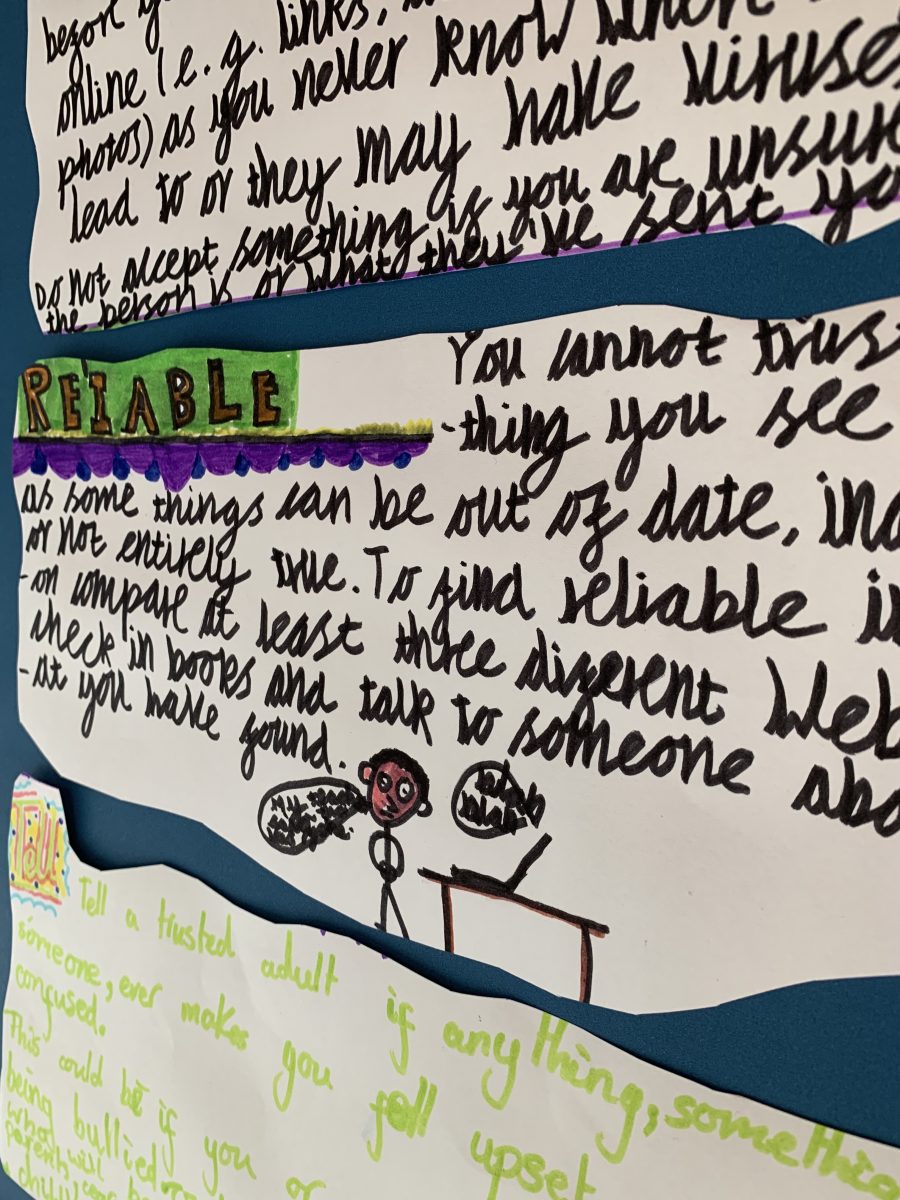 before
online (e.g. links,
photos) as you never know where
lead to or they may have viruses
Do not accept something if you are unsure
the person is or what they've sent yo
RElABLE
You cannot trus
-thing you see
as some things can be out of date, in
or not entirely true. To find reliable in
-on compare at least three diferent Web
check in books and talk to someone abo
-at you have found.
blah
blah
Tell
Tell a trusted adult if anything, somethi
someone, ever makes you fell upset
confused.
This could be if you or
being bullied